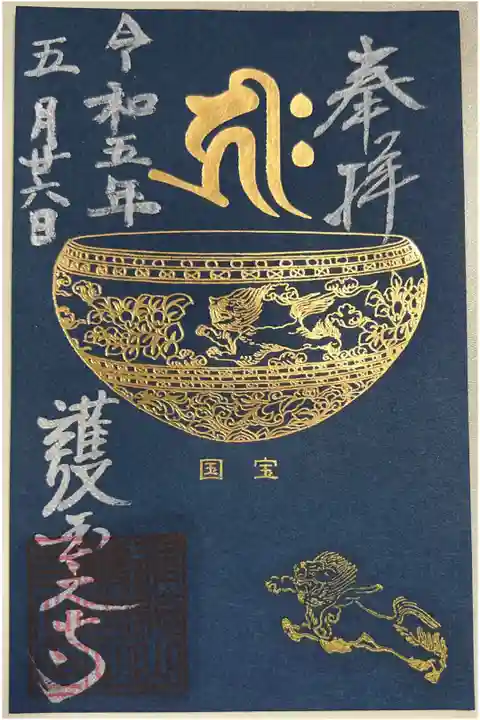 奉拝
令和五年
五月廿六日
国宝
護国之寺